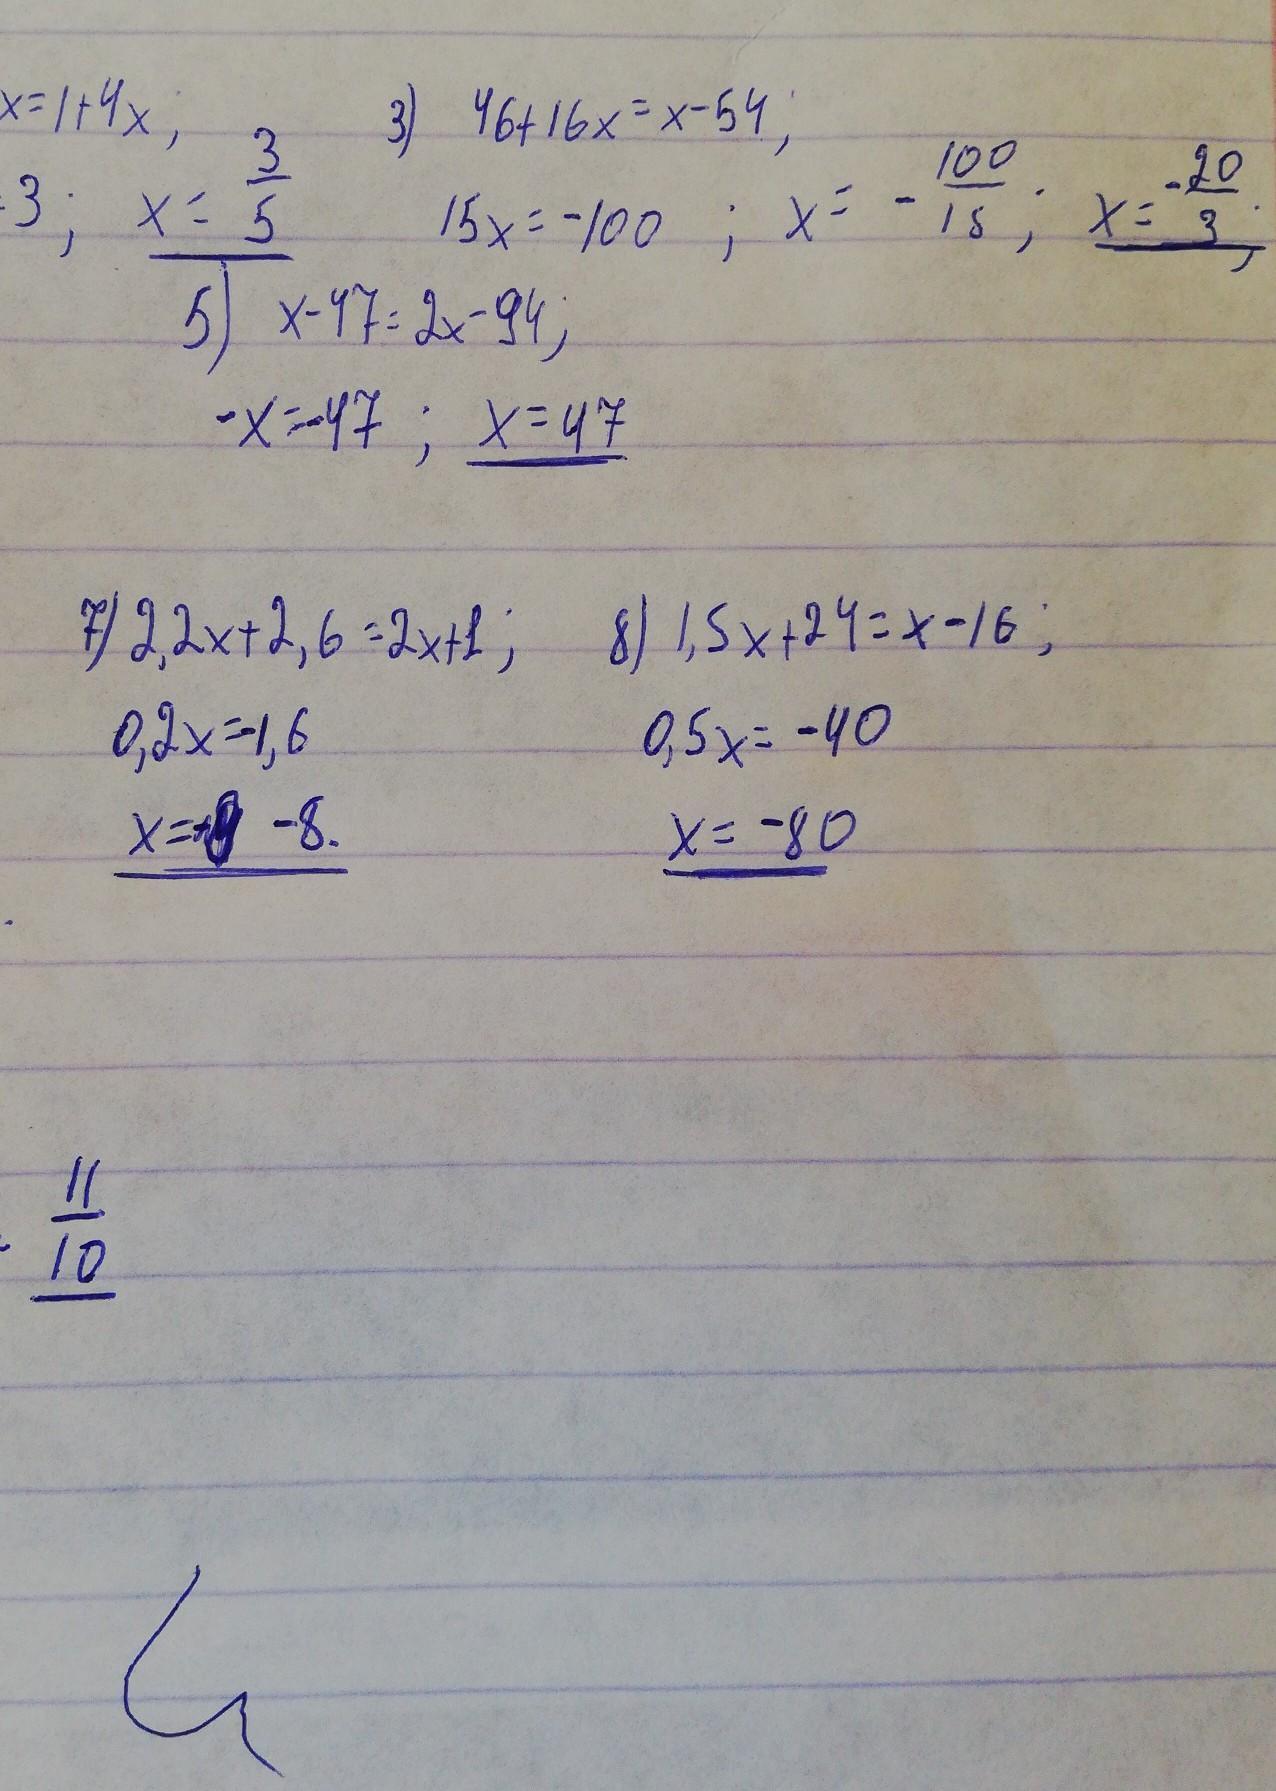 x=1+4x; 3) 46+16x=x-54;
3; x=3/5 15x=-100; x=-100/15; x=-20/3;
5) x-47=2x-94;
-x=-47; x=47
7) 2,2x+2,6=2x+1; 8) 1,5x+24=x-16;
0,2x=-1,6 0,5x=-40
x= -8. x=-80
11/10